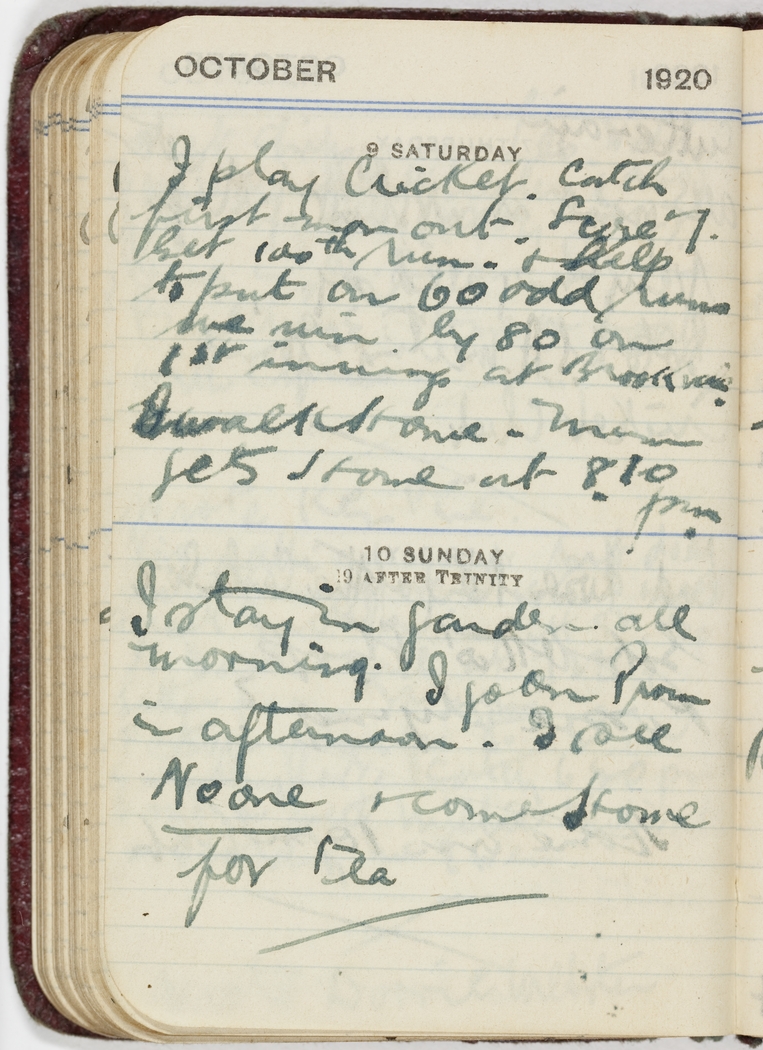 OCTOBER 1920
9 SATURDAY
I play Cricket. Catch
first man out. Score 7.
Get 100th run. & help
to put on 60 odd runs
we win by 80 on
1st innings at
I walk Home. Mum
gets Home at 8.10
pm.
10 SUNDAY
19 AFTER TRINITY
I stay in garden all
morning. I go on Prom
in afternoon. I see
No one & come Home
for Tea